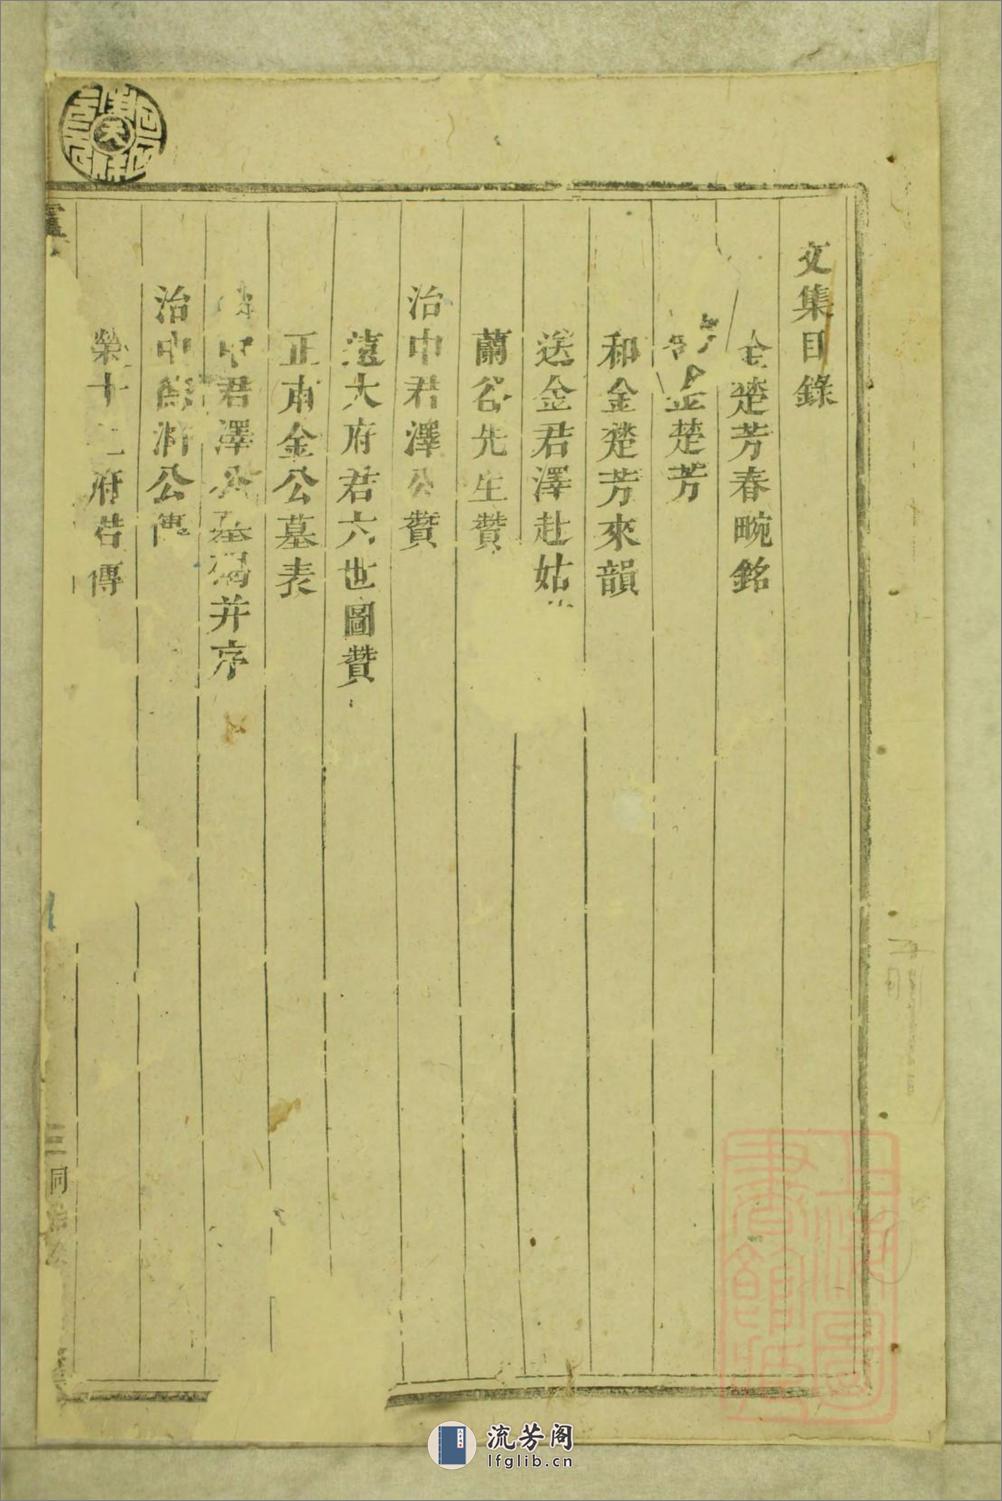 文集目錄
金楚芳春畹銘
金楚芳
和金楚芳來韻
送金君澤赴姑
蘭谷先生贊
治中君澤公贊
遠大府君六世圖贊
正甫金公墓表
中君澤公墓碣并序
治中公傳
榮十府君傳
上海圖書館藏
流芳阁
lfglib.cn